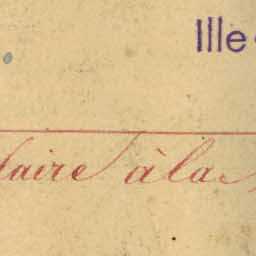 Ille
faire à la